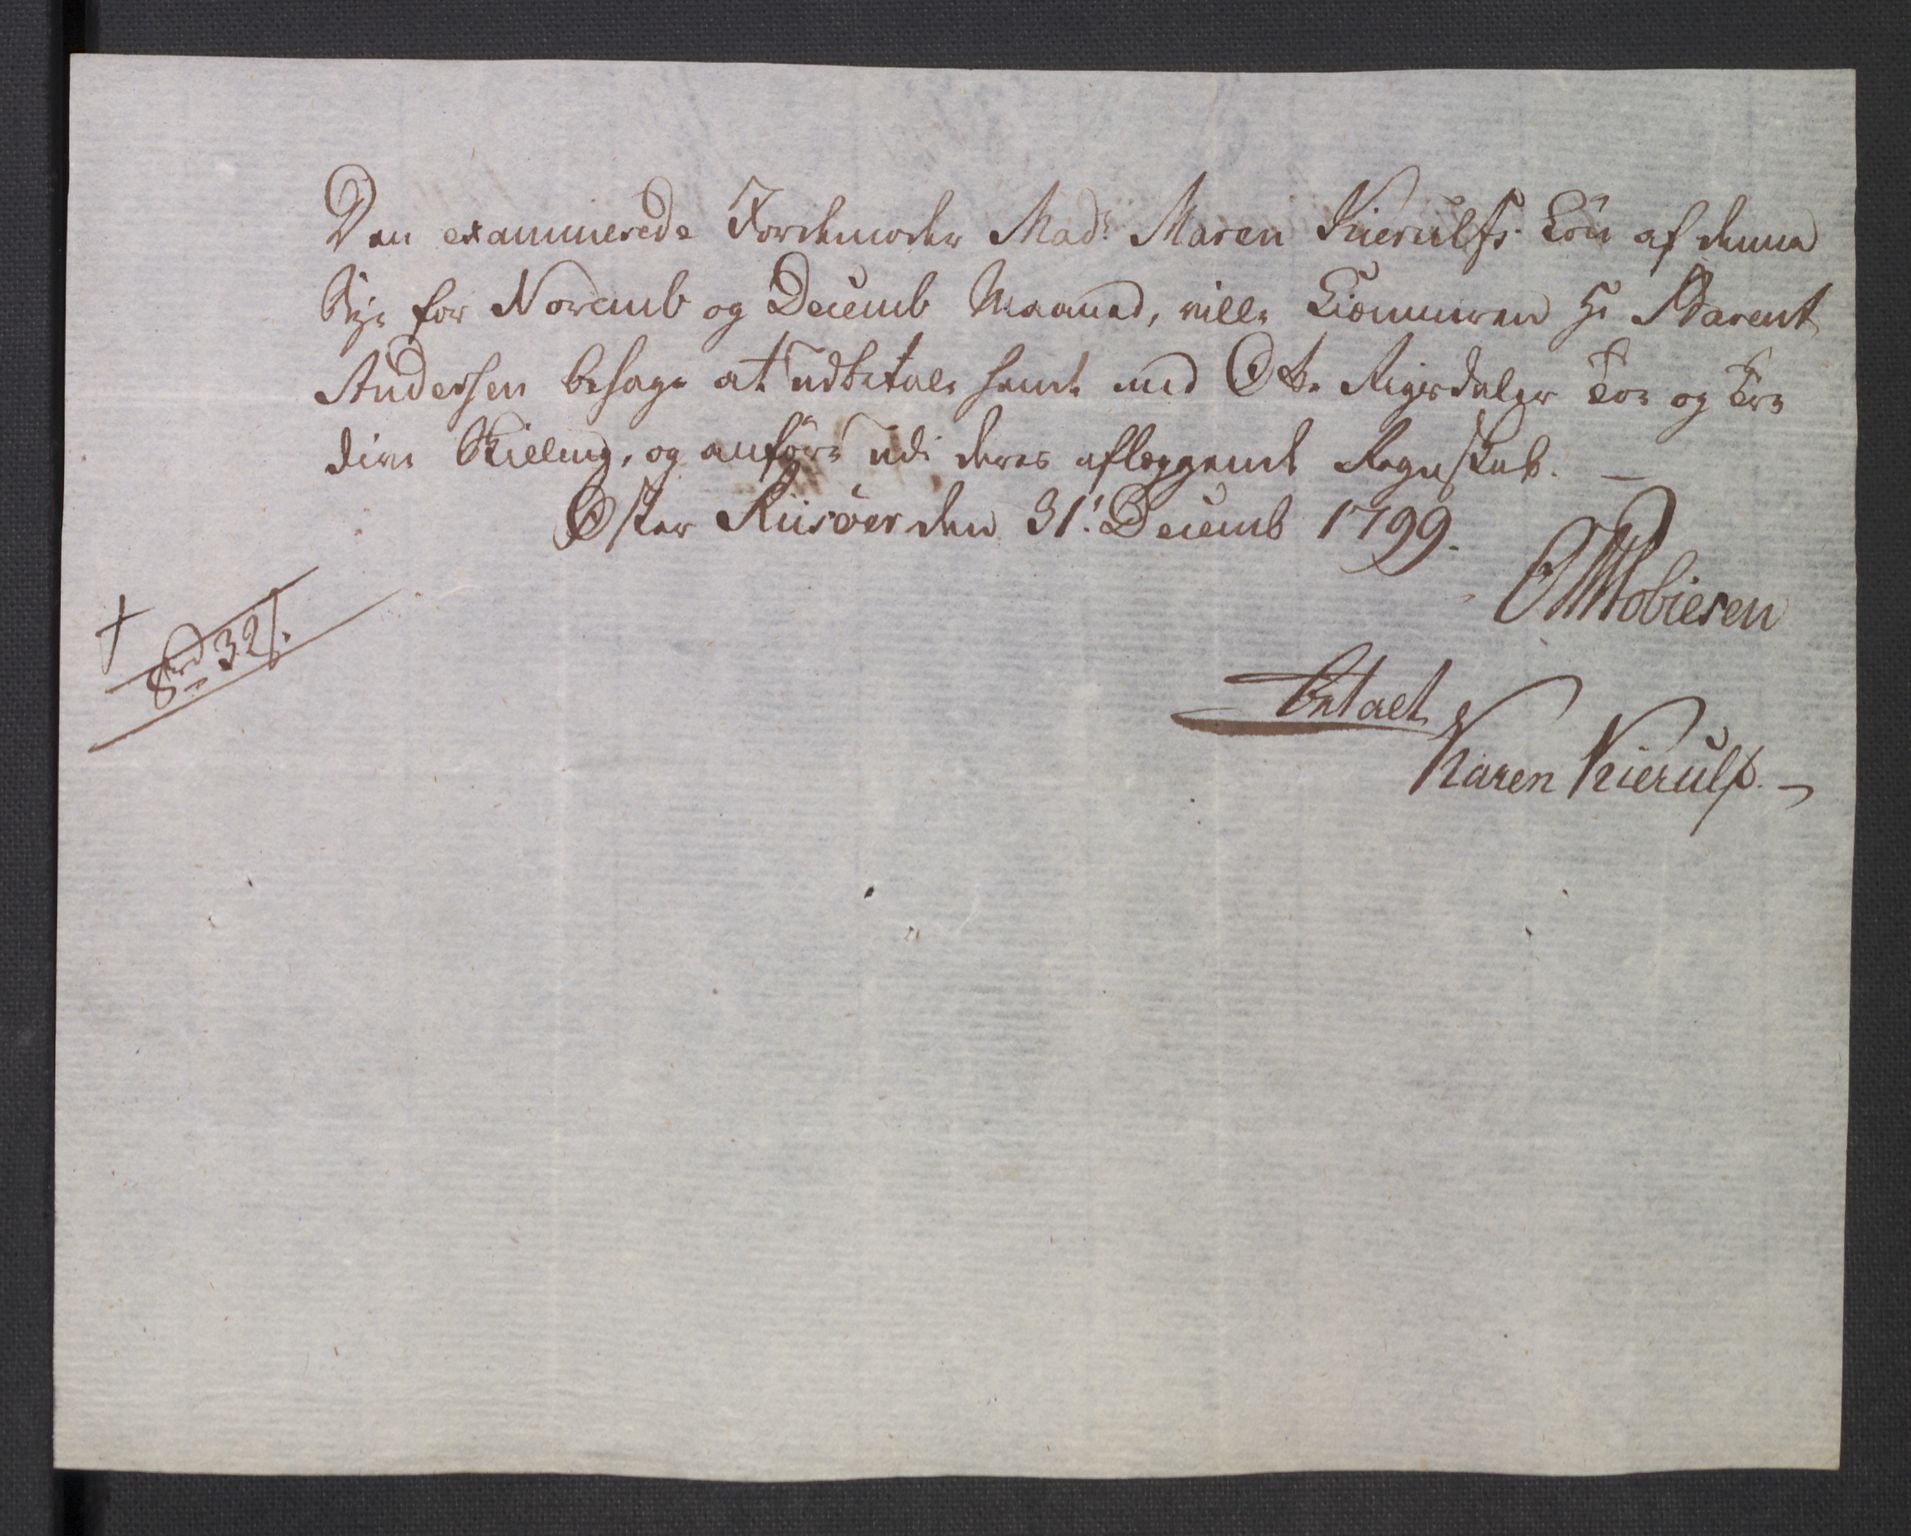 Den examinerede Jordemoder Mad: Maren Kierulfs Lön af denne
Bye for Novemb og Decemb Maaned, ville Kiæmneren Hr Barent
Andersen behage at udbetale hende med Otte Rigsdaler Toe og Tre
dive Skilling, og anföre udi deres aflæggende Regnskab. —
Øster Riisöer den 31: Decemb 1799.
Tobiesen
8rd 32s.
betalt
Karen Kierulf. —